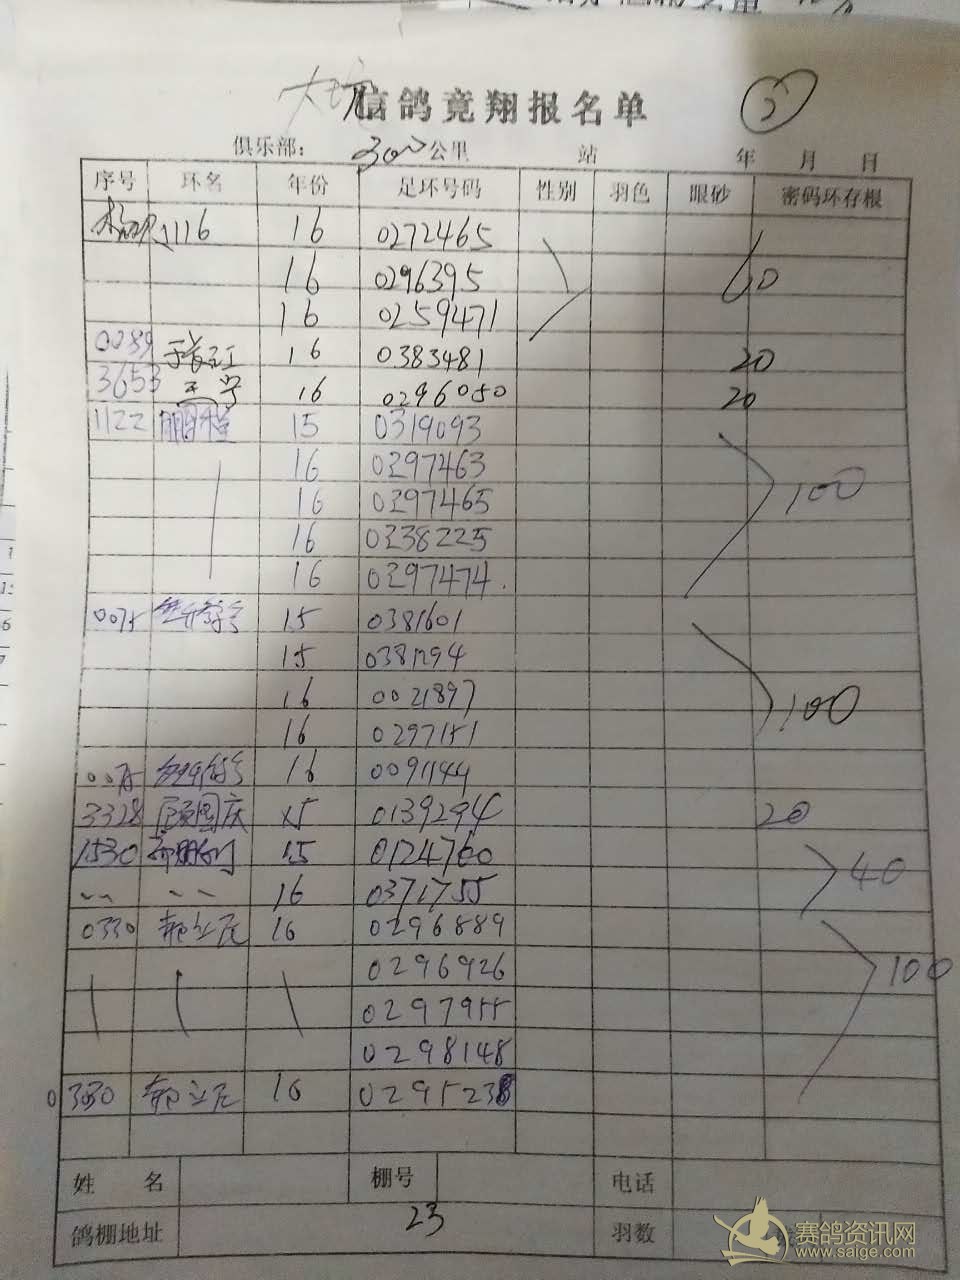 信鸽竞翔报名单 5
俱乐部： 300公里 站 年 月 日
序号 环名 年份 足环号码 性别 羽色 眼砂 密码环存根
1116 16 0272465
16 0296395 60
16 0259471
0089 于长江 16 0383481 20
3653 王宁 16 0296050 20
1122 15 0319093
16 0297463
16 0297465 100
16 0238225
16 0297474.
0075 15 0381601
15 0381294
16 0021897 100
16 0297151
0075 16 0091144
3328 顾国庆 15 0139294 20
1530 15 0124760 40
16 0371755
0330 16 0296889
0296926 100
0297955
0298148
0330 16 0295238
姓 名 棚号 电话
鸽棚地址 23 羽数
赛鸽资讯网
www.saige.com